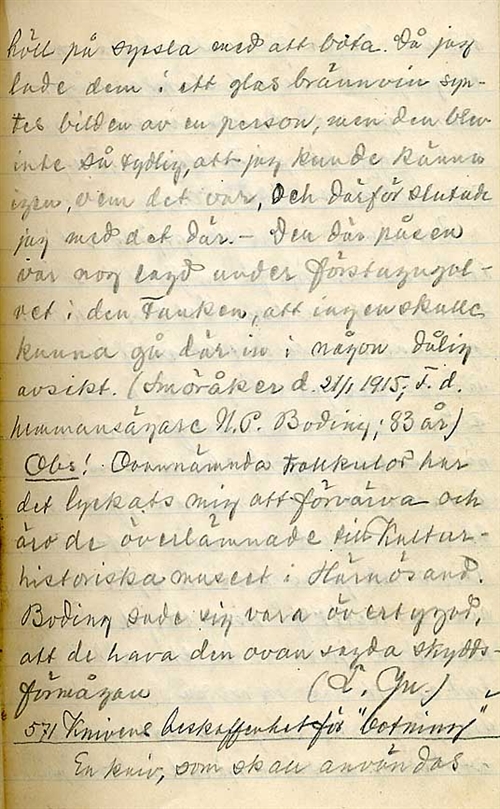 höll på syssla med att bota. Då jag
lade dem i ett glas brännvin syn-
tes bilden av en person, men den blev
inte så tydlig, att jag kunde känna
igen, vem det var, och därför slutade
jag med det där. – Den där påsen
var nog lagd under förstugugol-
vet i den tanken, att ingen skulle
kunna gå där in i någon dålig
avsikt. (Småråker d. 21/1 1915, f. d.
hemmansägare N. P. Boding, 83 år)
Obs! Ovannämnda trollkulor har
det lyckats mig att förvärva och
äro de överlämnade till Kultur-
historiska museet i Härnösand.
Boding sade sig vara övertygad,
att de hava den ovan sagda skydds-
förmågan
571 Knivens beskaffenhet för "botning"
En kniv, som skall användas